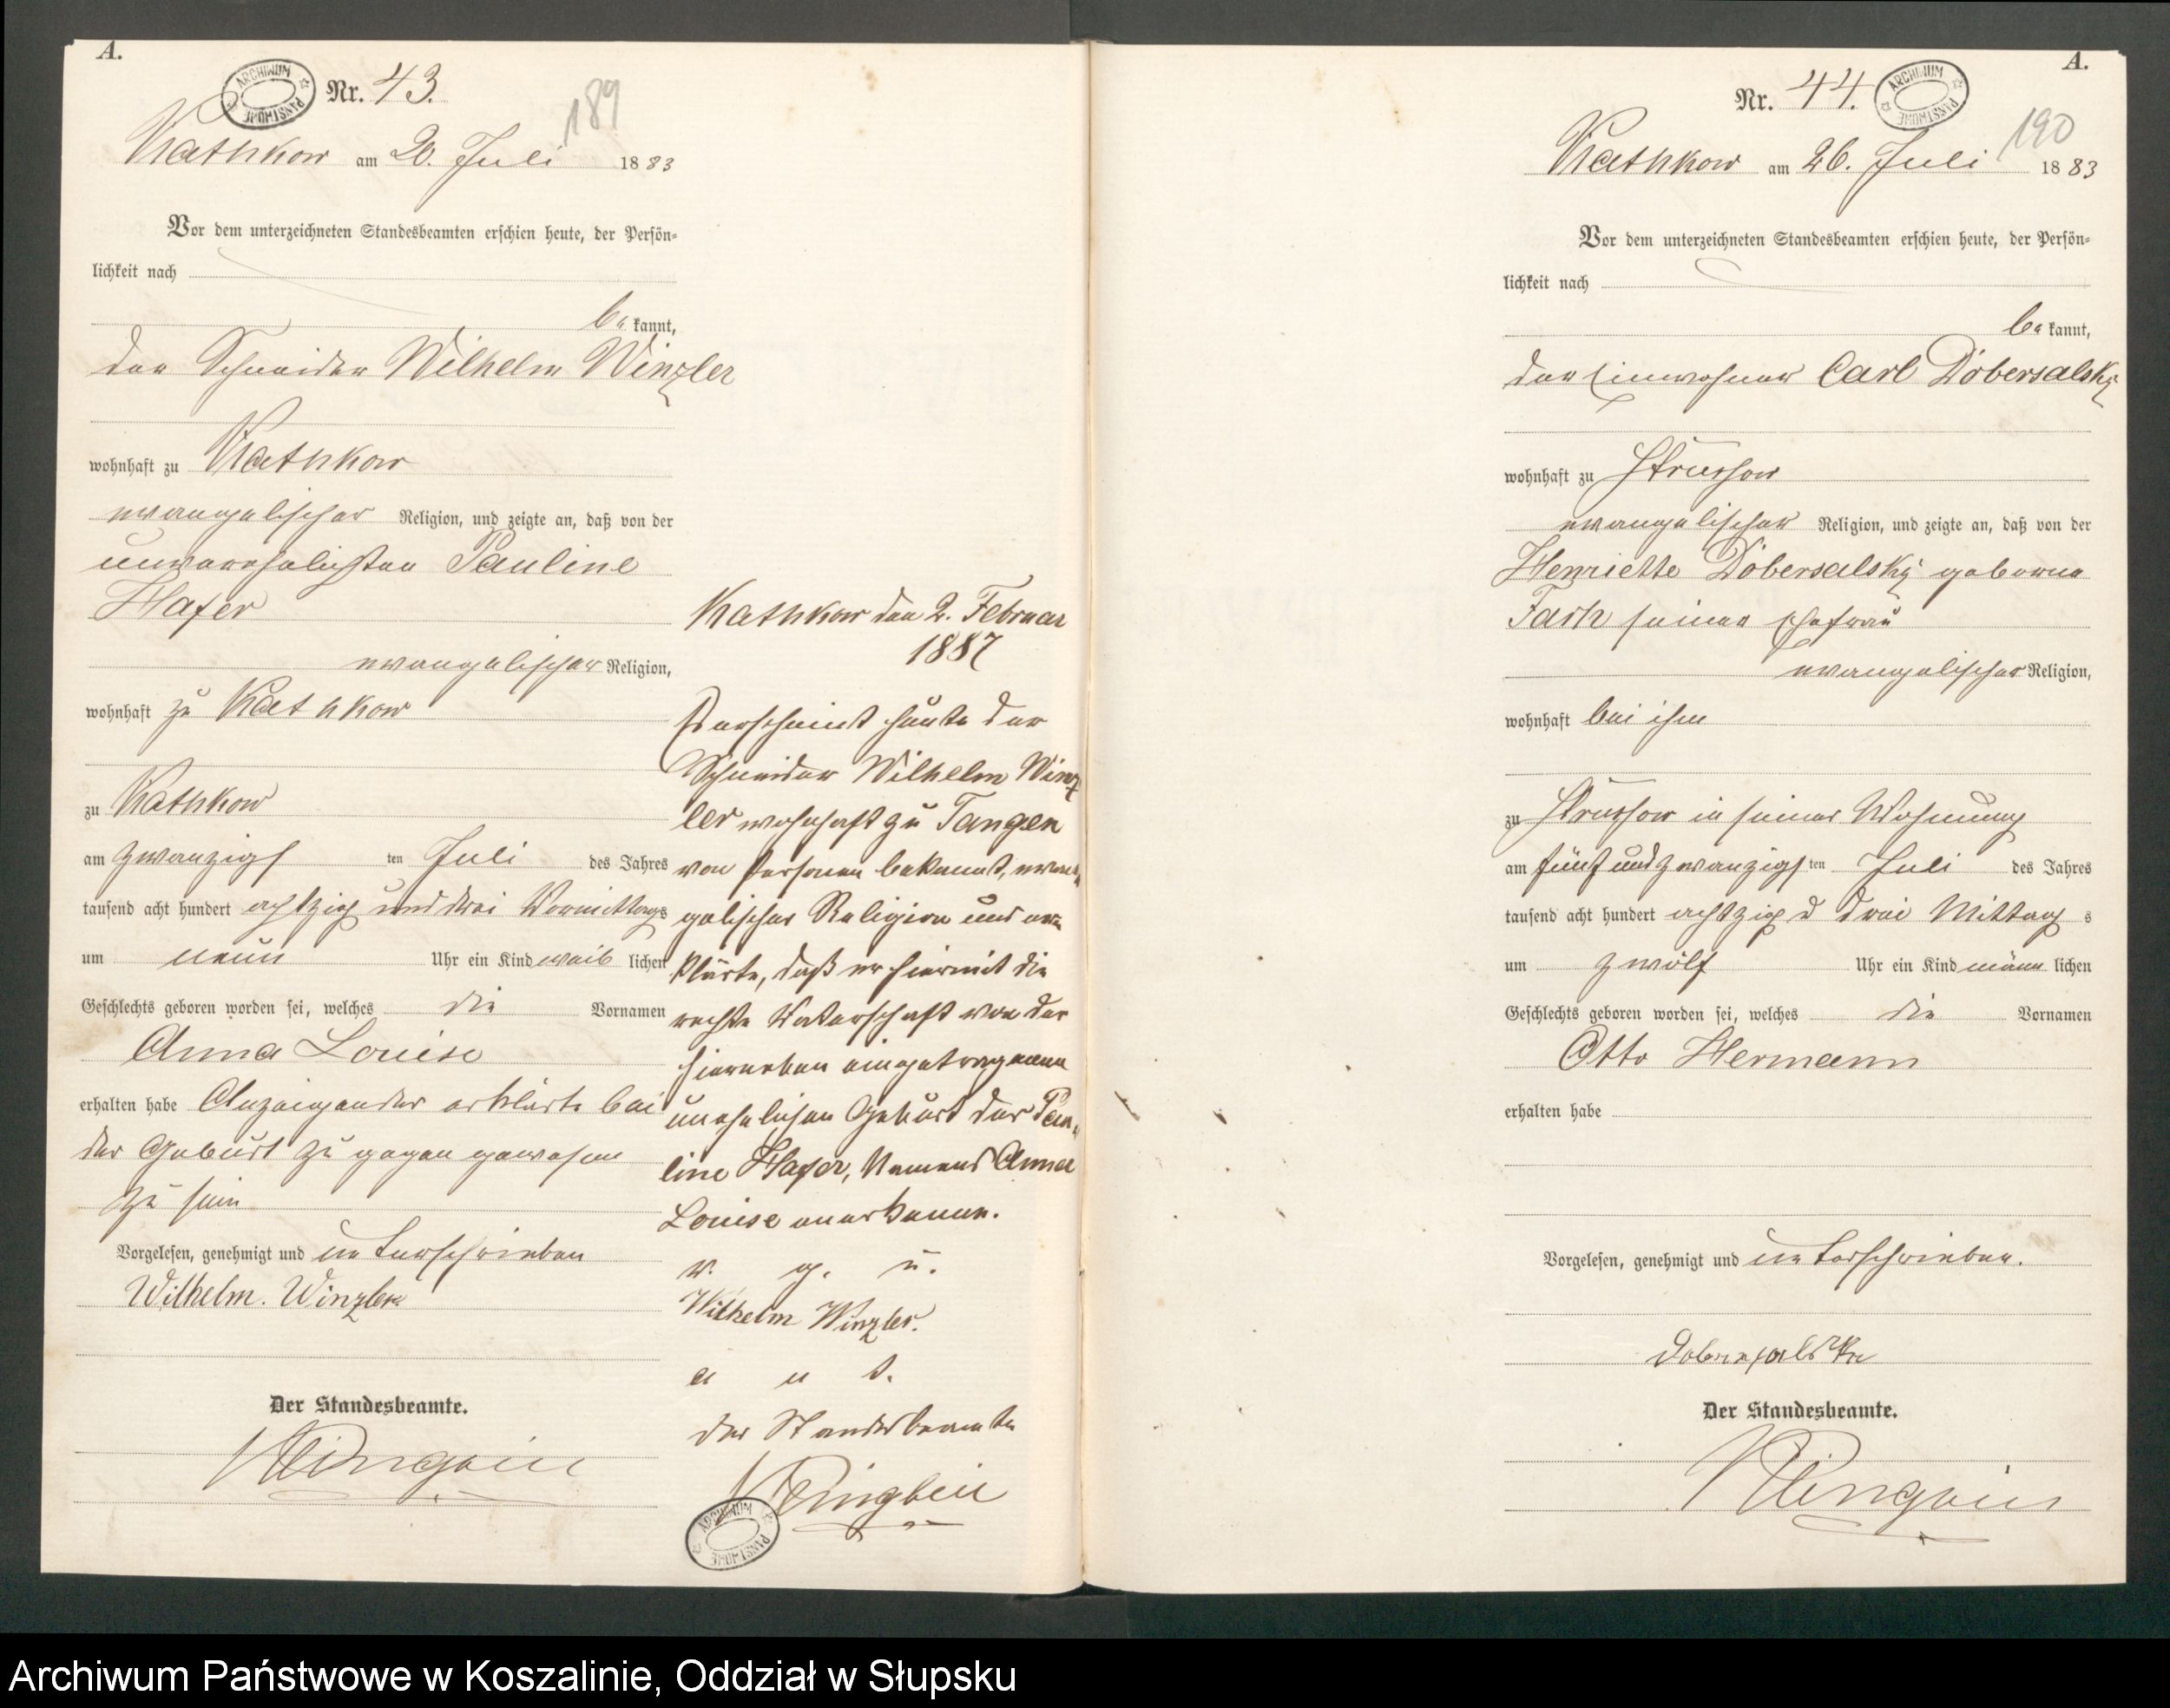 A.
ARCHIWUM PAŃSTWOWE
Nr. 43.
189
Kathkow am 20. Juli 1883
Vor dem unterzeichneten Standesbeamten erschien heute, der Persön-
lichkeit nach
be kannt,
der Schneider Wilhelm Winzler
wohnhaft zu Kathkow
evangelischer Religion, und zeigte an, daß von der
unverehelichten Pauline
Hafer
evangelischer Religion,
wohnhaft zu Kathkow
zu Kathkow
am zwanzigs ten Juli des Jahres
tausend acht hundert achtzig und drei Vormittags
um neun Uhr ein Kind weib lichen
Geschlechts geboren worden sei, welches die Vornamen
Anna Louise
erhalten habe Anzeigender erklärte bei
der Geburt zugegen gewesen
zu sein
Vorgelesen, genehmigt und unterschrieben
Wilhelm. Winzler.
Der Standesbeamte.
Klingbeil
Kathkow den 2. Februar
1887
Es erscheint heute der
Schneider Wilhelm Winz
ler wohnhaft zu Tangen
von Personen bekannt, evan-
gelischer Religion und er-
klärte, daß er hiermit die
rechte Vaterschaft von der
hierneben eingetragenen
unehelichen Geburt der Pau-
line Hafer, Namens Anna
Louise anerkenne.
v. g. u.
Wilhelm Winzler.
a u s.
Der Standesbeamte
Klingbeil
ARCHIWUM PAŃSTWOWE
A.
Nr. 44.
ARCHIWUM PAŃSTWOWE
190
Kathkow am 26. Juli 1883
Vor dem unterzeichneten Standesbeamten erschien heute, der Persön-
lichkeit nach
be kannt,
der Einwohner Carl Döbersalsky
wohnhaft zu Strussow
evangelischer Religion, und zeigte an, daß von der
Henriette Döbersalsky geborne
seiner Ehefrau
evangelischer Religion,
wohnhaft bei ihm
zu Strussow in seiner Wohnung
am fünf und zwanzigs ten Juli des Jahres
tausend acht hundert achtzig u drei Mittag s
um zwölf Uhr ein Kind männ lichen
Geschlechts geboren worden sei, welches die Vornamen
Otto Hermann
erhalten habe
Vorgelesen, genehmigt und unterschrieben.
Der Standesbeamte.
Klingbeil
Archiwum Państwowe w Koszalinie, Oddział w Słupsku